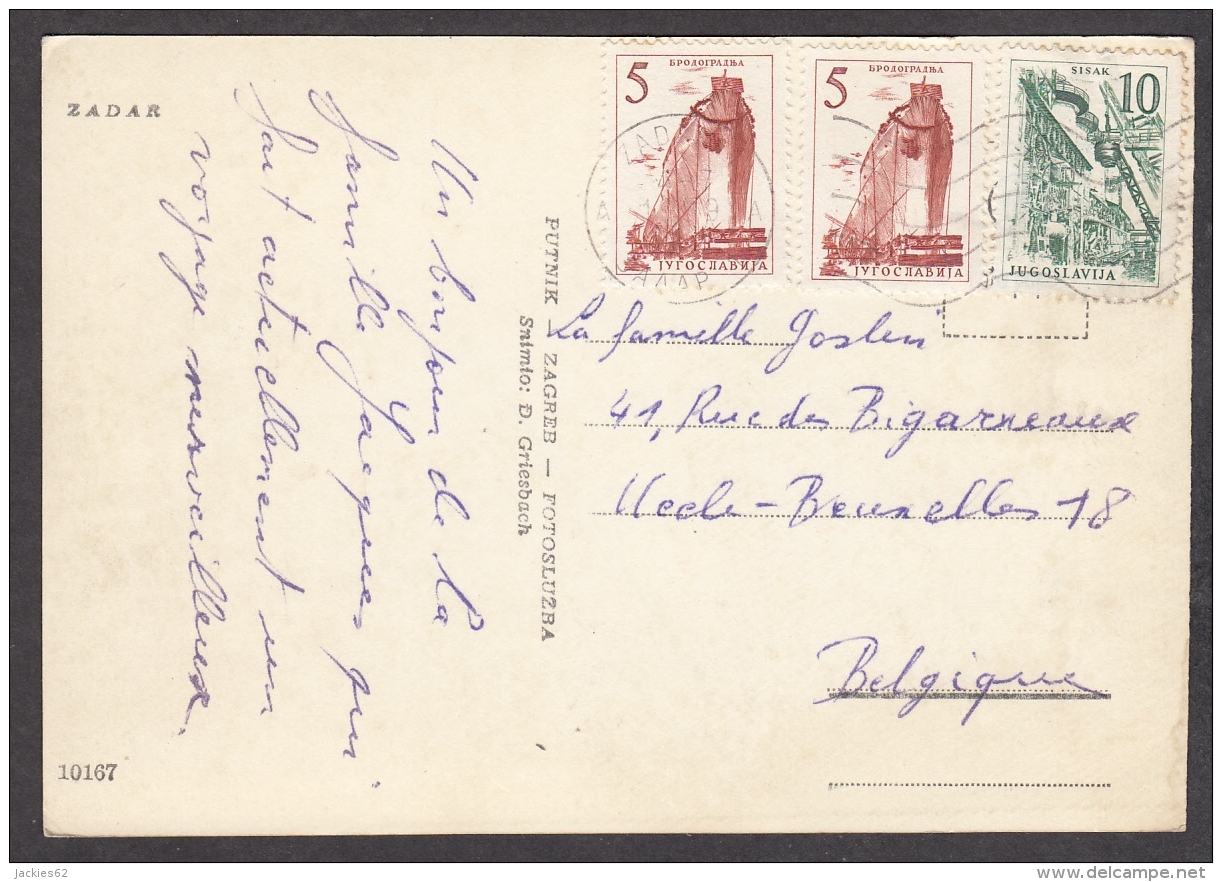 ZADAR
Un bonjour de la
famille Jacques qui
fait actuellement un
voyage merveilleux.
10167
PUTNIK — ZAGREB — FOTOSLUŽBA
Snimio: Đ. Griesbach
5
БРОДОГРАДЊА
ЈУГОСЛАВИЈА
5
БРОДОГРАДЊА
ЈУГОСЛАВИЈА
SISAK
10
JUGOSLAVIJA
La famille Joslen
41, Rue des Bigarreaux
Uccle-Bruxelles 18
Belgique
jackies62
www.delcampe.net